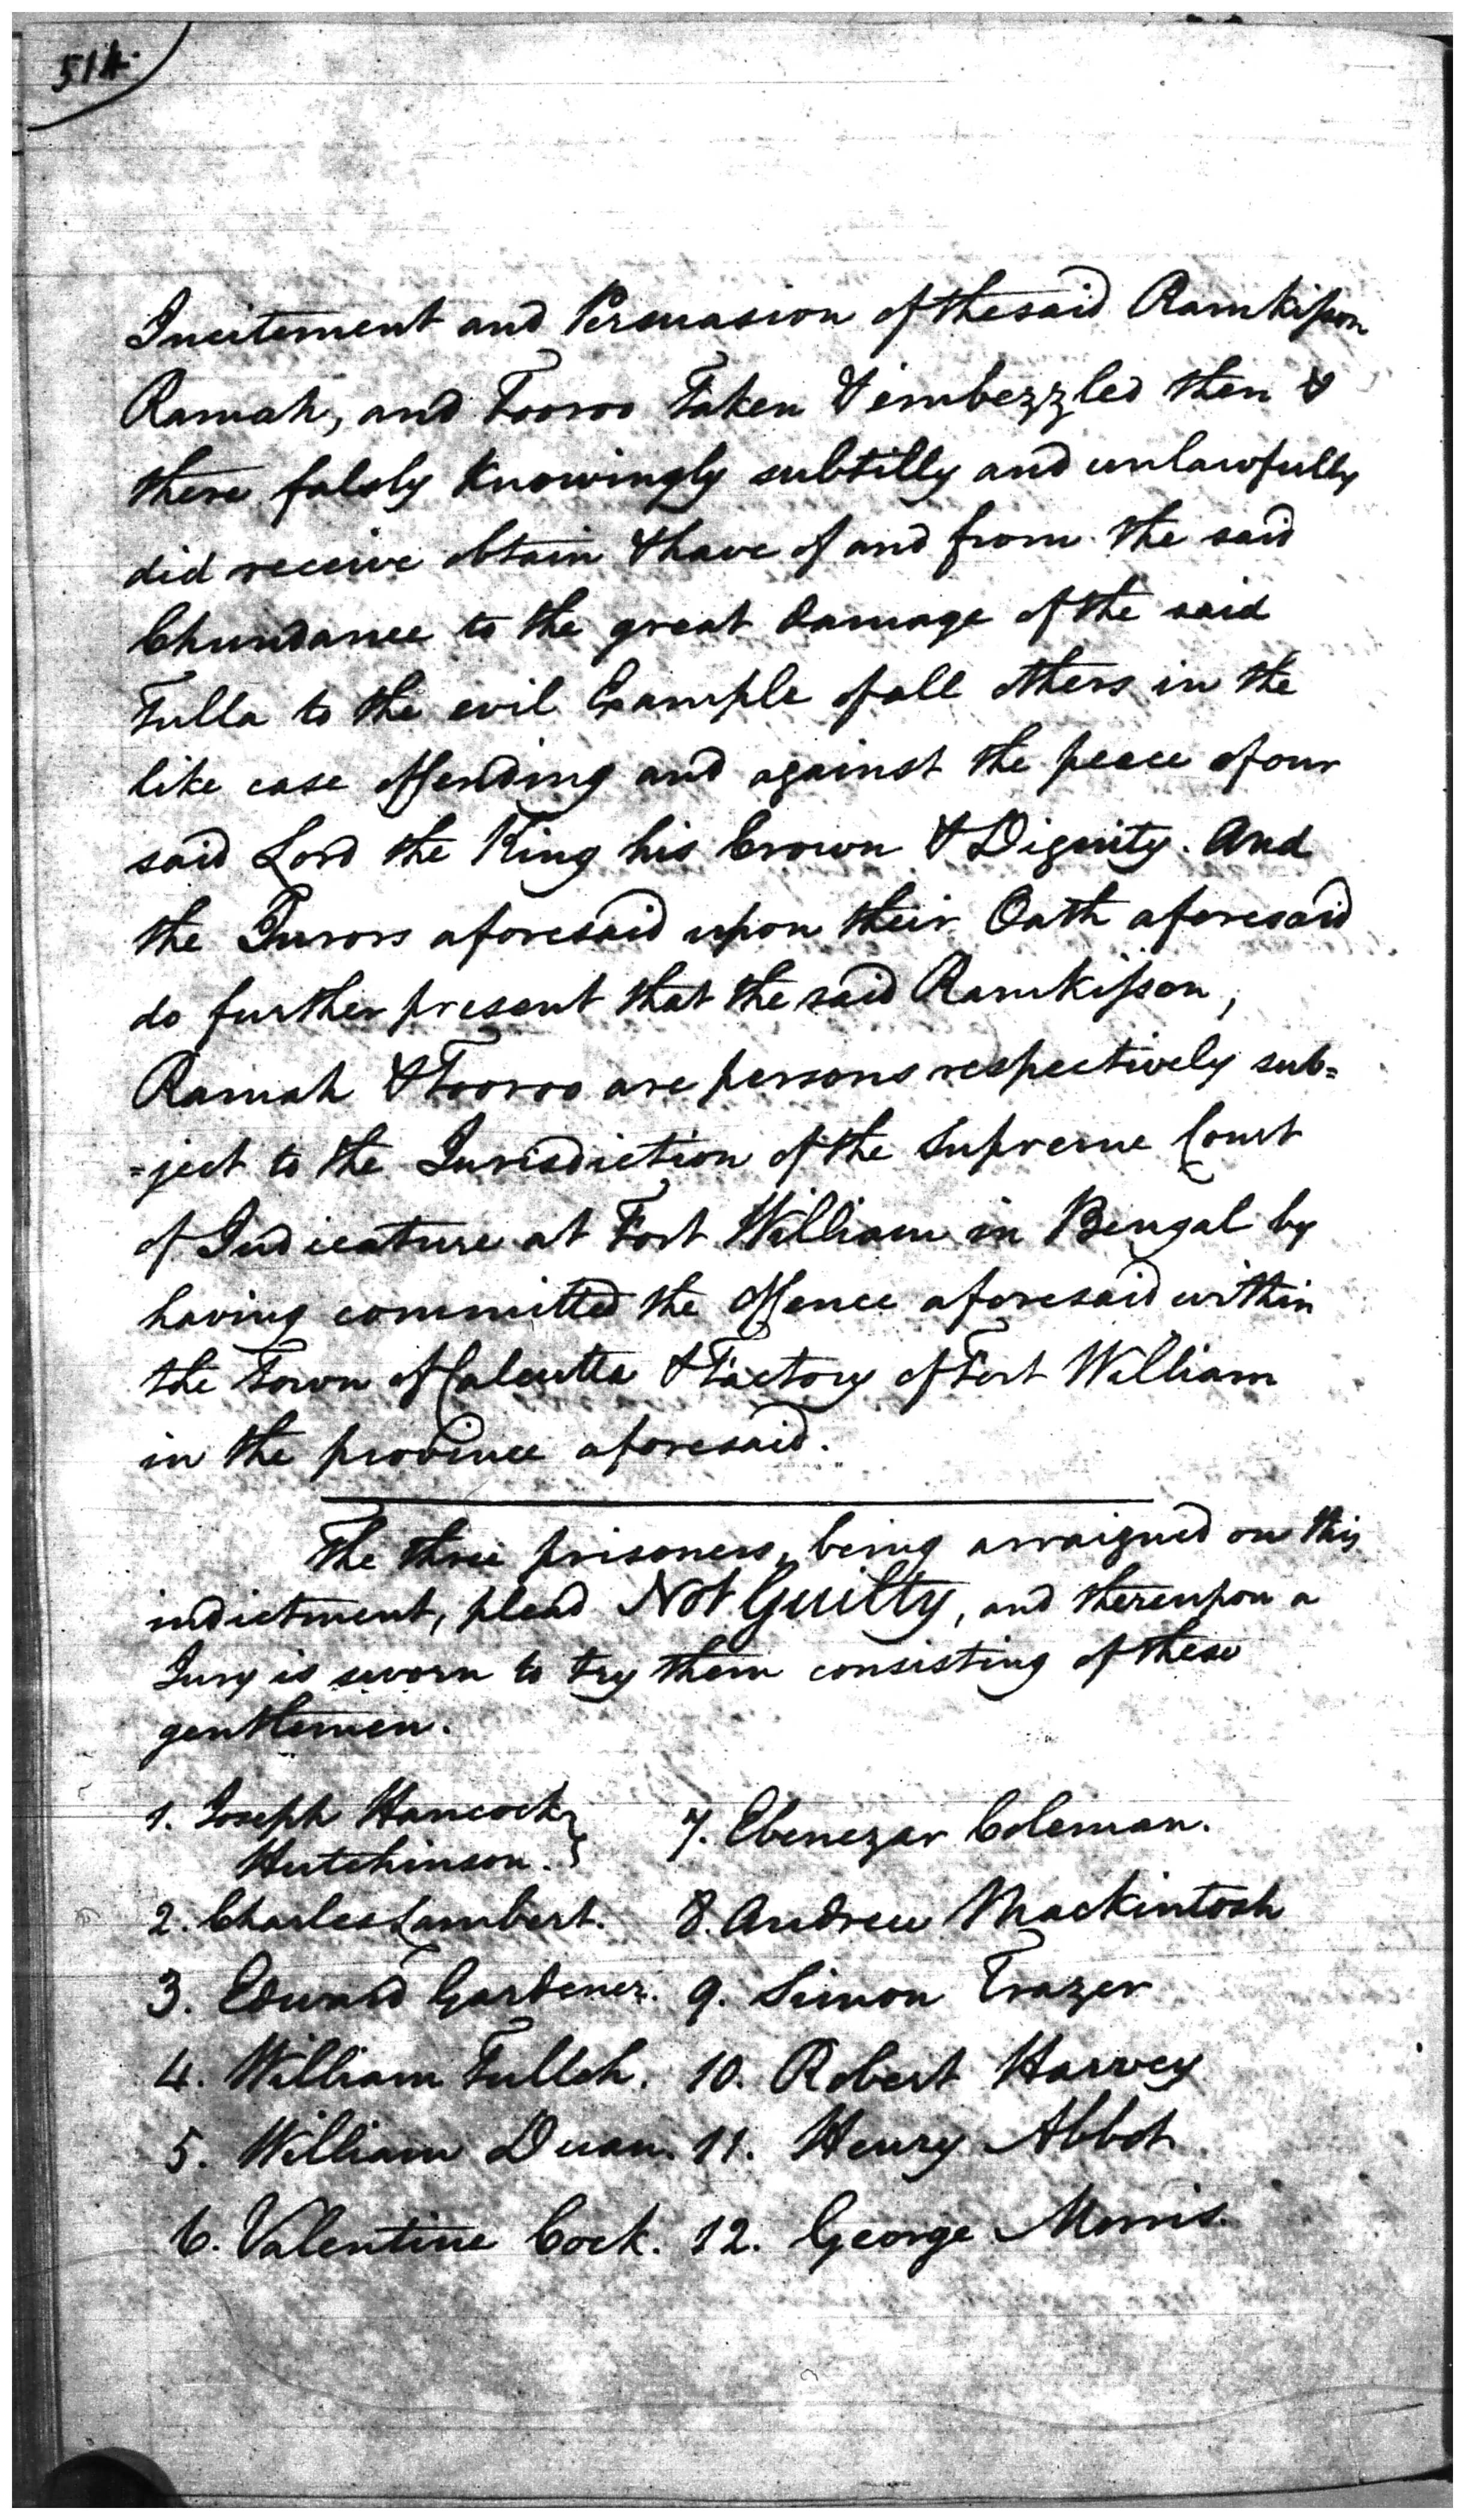 514.
Incitement and Persuasion of the said Ramkisson
Ramah, and Tooroo Taken & embezzled then &
there falsly Knowingly subtilly and unlawfully
did receive obtain & have of and from the said
Chundanee to the great Damage of the said
Tulla to the evil Example of all others in the
like case offending and against the peace of our
said Lord the King his Crown & Dignity. And
the Jurors aforesaid upon their Oath aforesaid
do further present that the said Ramkisson,
Ramah & Tooroo are persons respectively sub=
=ject to the Jurisdiction of the Supreme Court
of Judicature at Fort William in Bengal by
having committed the offence aforesaid within
the Town of Calcutta & Factory of Fort William
in the province aforesaid.
The three prisoners, being arraigned on this
indictment, plead Not Guilty, and thereupon a
Jury is sworn to try them consisting of these
gentlemen.
1. Joseph Hancock } 7. Ebenezar Coleman.
Hutchinson. }
2. Charles Lambert. 8. Andrew Mackintosh
3. Edward Gardener. 9. Simon Frazer
4. William 10. Robert Harvey
5. William Duan. 11. Henry Abbot
6. Valentine Cock. 12. George Morris.